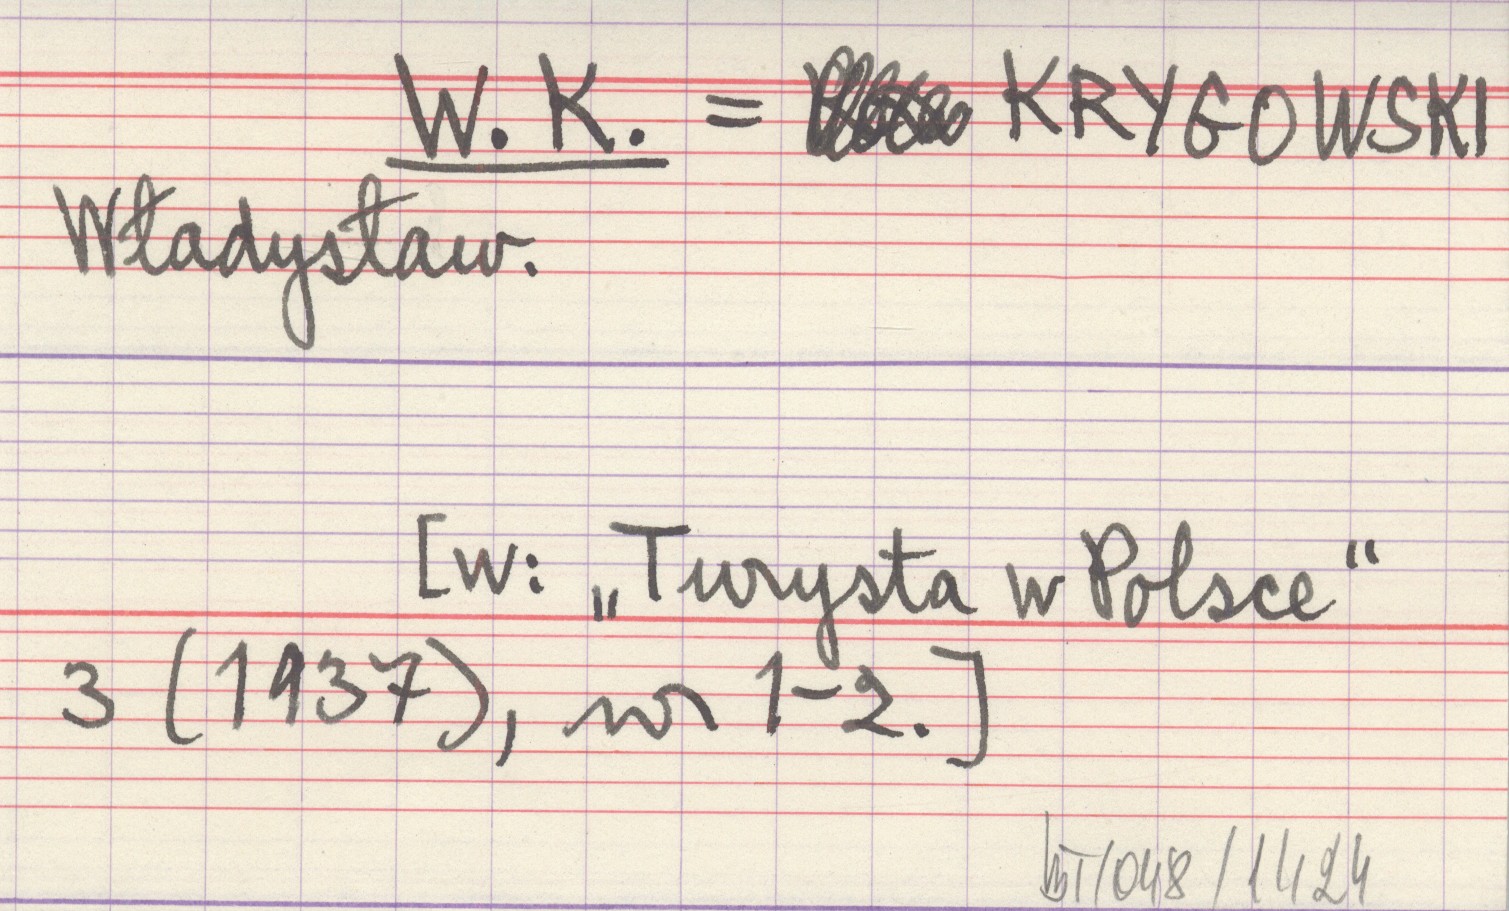 W. K. = KRYGOWSKI
Władysław.
[w: „Turysta w Polsce“
3 (1937), nr 1-2.]
/048/1424